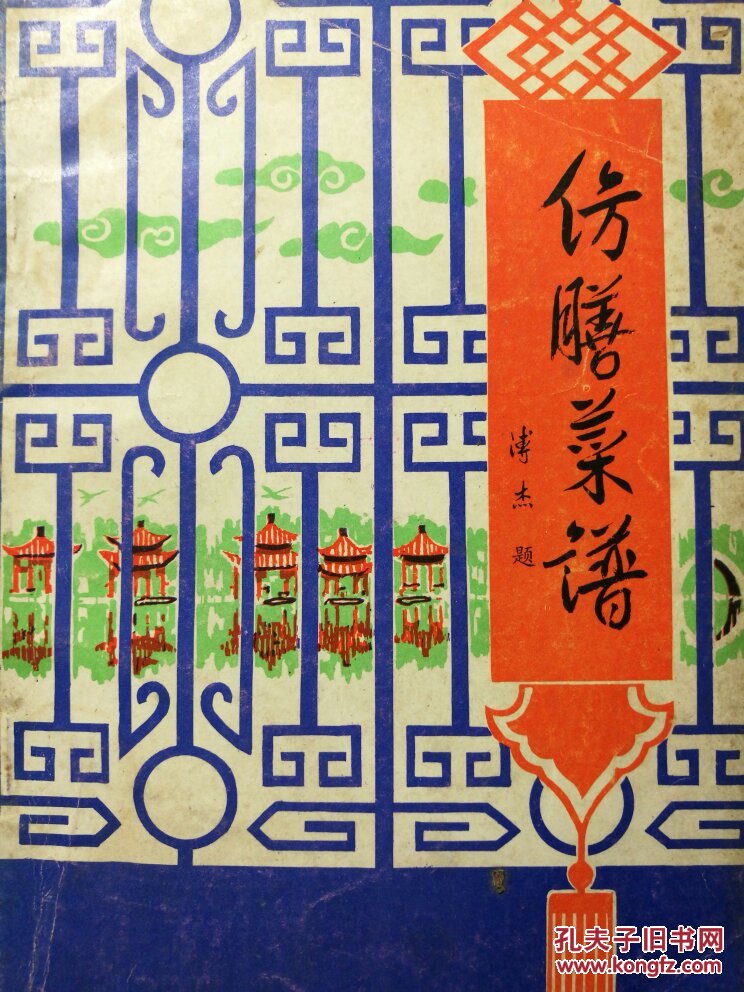 仿膳菜谱
溥杰题
孔夫子旧书网
kongfz.com